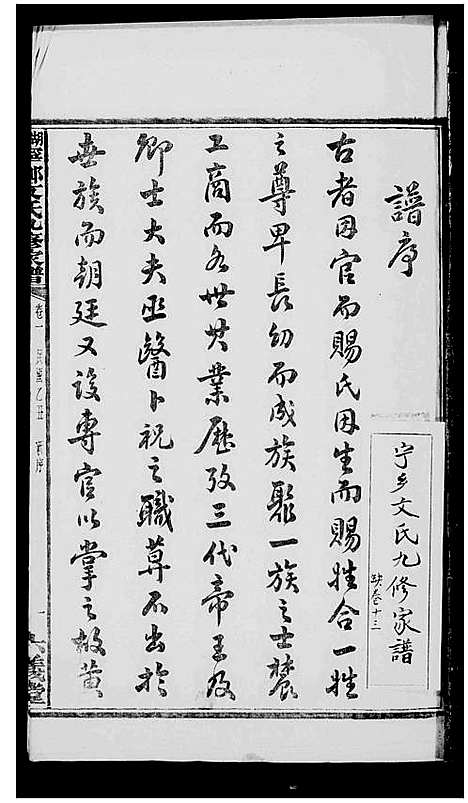 譜序
古者因官而賜氏因生而賜姓合一姓
之尊卑長幼而成族聚一族之士農
工商而各世其業歷攷三代帝王及
卿士大夫巫醫卜祝之職莫不出於
世族而朝廷又設專官以掌之故黃
宁乡文氏九修家譜
缺卷十三
湖寧鄉文氏九修家譜
卷一
民國乙丑
首序
一
六義堂